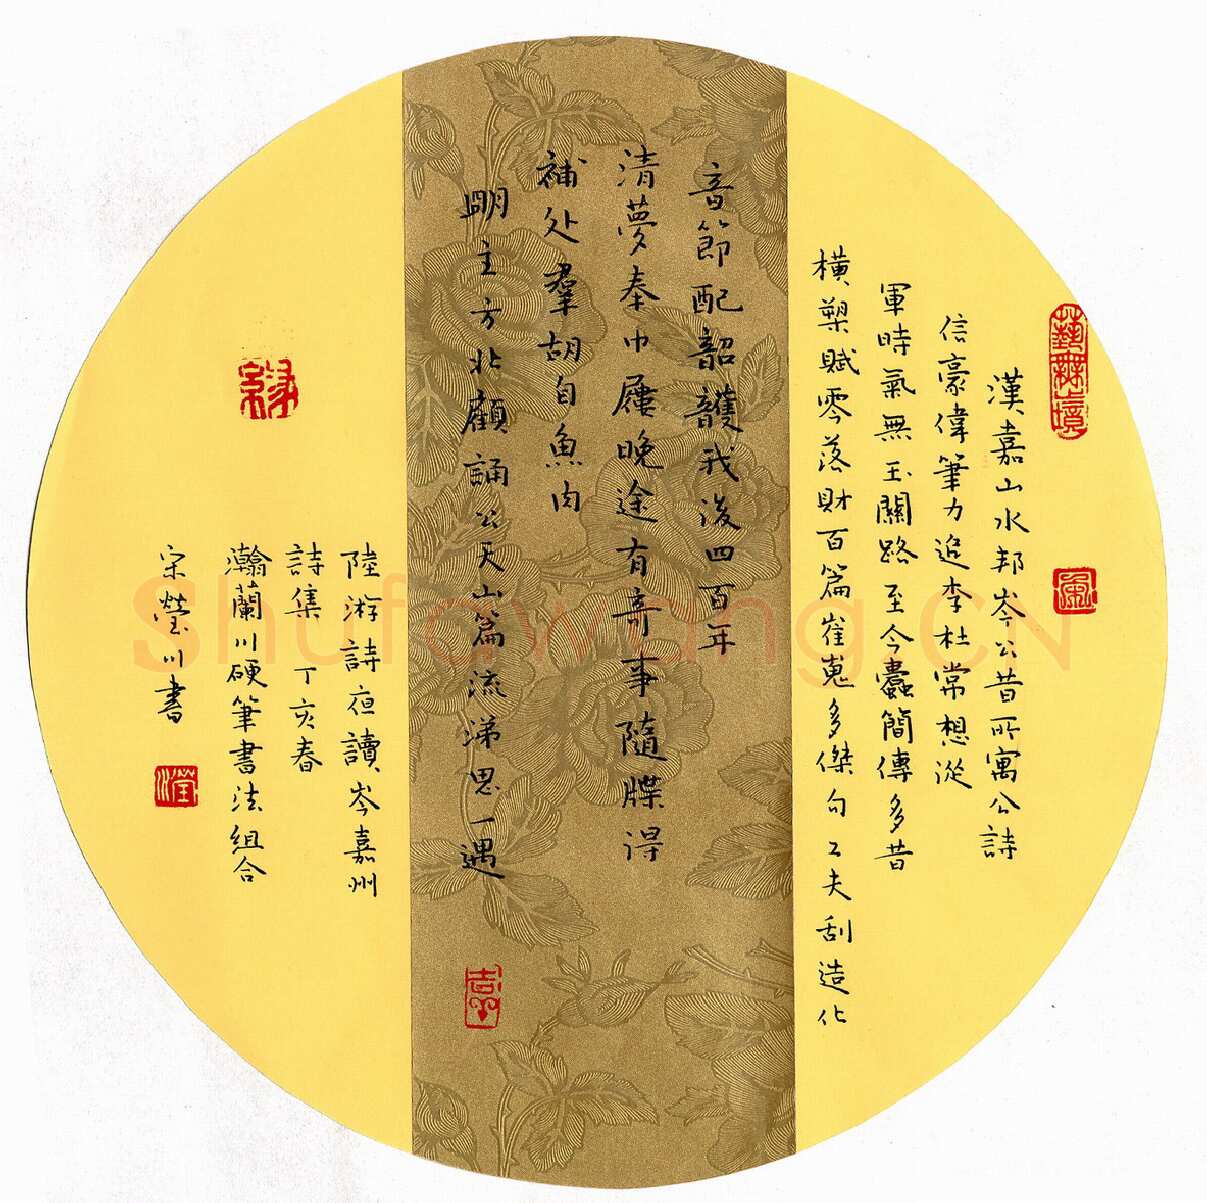 漢嘉山水邦岑公昔所寓公詩
信豪偉筆力追李杜常想從
軍時氣無玉關路至今蠹簡傳多昔
橫槊賦零落財百篇崔嵬多傑句工夫刮造化
音節配韶頀我後四百年
清夢奉巾屨晚途有奇事隨牒得
補处羣胡自魚肉
明主方北顧誦公天山篇流涕思一遇
陸游詩夜讀岑嘉州
詩集 丁亥春
瀚蘭川硬筆書法組合
宋瑩川書
藝無境
緣
Shufawang.CN